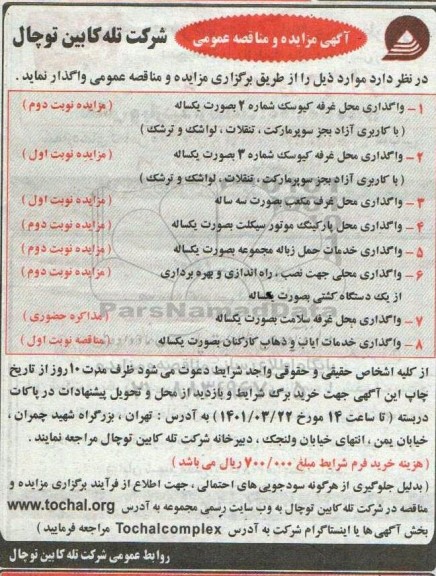 آگهی مزایده و مناقصه عمومی
شرکت تله کابین توچال
در نظر دارد موارد ذیل را از طریق برگزاری مزایده و مناقصه عمومی واگذار نماید .
۱ - واگذاری محل غرفه کیوسک شماره ۲ بصورت یکساله ( مزایده نوبت دوم )
( با کاربری آزاد بجز سوپرمارکت ، تنقلات ، لواشک و ترشک )
۲ - واگذاری محل غرفه کیوسک شماره ۳ بصورت یکساله ( مزایده نوبت اول )
( با کاربری آزاد بجز سوپرمارکت ، تنقلات ، لواشک و ترشک )
۳ - واگذاری محل غرف مکعب بصورت سه ساله ( مزایده نوبت اول )
۴ - واگذاری محل پارکینگ موتور سیکلت بصورت یکساله ( مزایده نوبت دوم )
۵ - واگذاری خدمات حمل زباله مجموعه بصورت یکساله ( مزایده نوبت دوم )
۶ - واگذاری محلی جهت نصب ، راه اندازی و بهره برداری ( مزایده نوبت دوم )
از یک دستگاه کشتی بصورت یکساله
۷ - واگذاری محل غرفه سلامت بصورت یکساله ( مذاکره حضوری )
۸ - واگذاری خدمات ایاب و ذهاب کارکنان بصورت یکساله ( مناقصه نوبت اول )
از کلیه اشخاص حقیقی و حقوقی واجد شرایط دعوت می شود ظرف مدت ۱۰ روز از تاریخ
چاپ این آگهی جهت خرید برگ شرایط و بازدید از محل و تحویل پیشنهادات در پاکات
دربسته ( تا ساعت ۱۴ مورخ ۱۴۰۱/۰۳/۲۲ ) به آدرس : تهران ، بزرگراه شهید چمران ،
خیابان یمن ، انتهای خیابان ولنجک ، دبیرخانه شرکت تله کابین توچال مراجعه نمایند .
( هزینه خرید فرم شرایط مبلغ ۷۰۰/۰۰۰ ریال می باشد )
( بدلیل جلوگیری از هرگونه سودجویی های احتمالی ، جهت اطلاع از فرآیند برگزاری مزایده و
مناقصه در شرکت تله کابین توچال به وب سایت رسمی مجموعه به آدرس www.tochal.org
بخش آگهی ها یا اینستاگرام شرکت به آدرس Tochalcomplex مراجعه فرمایید )
روابط عمومی شرکت تله کابین توچال
ParsNamadData